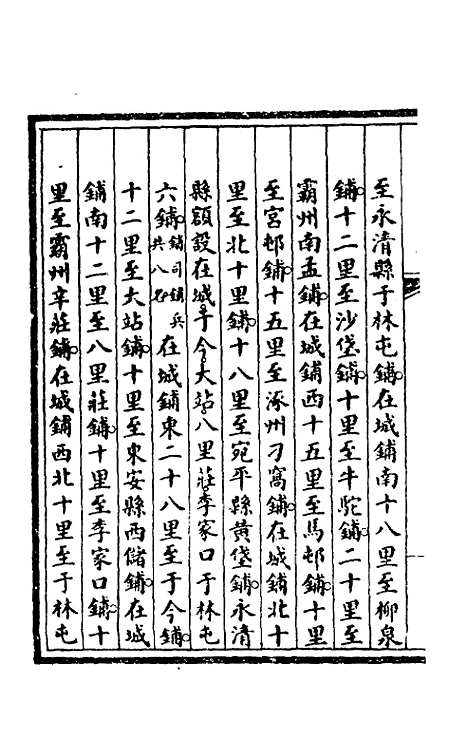 至永清縣于林屯鋪在城鋪南十八里至柳泉
鋪十二里至沙垡鋪十里至牛駝鋪二十里至
霸州南孟鋪在城鋪西十五里至馬邨鋪十里
至宮邨鋪十五里至涿州刁窩鋪在城鋪北十
里至北十里鋪十八里至宛平縣黄垡鋪永清
縣額設在城于今大站八里莊李家口于林屯
六鋪鋪司鋪兵共八名在城鋪東二十八里至于今鋪
十二里至大站鋪十里至東安縣西儲鋪在城
鋪南十二里至八里莊鋪十里至李家口鋪十
里至霸州辛莊鋪在城鋪西北十里至于林屯